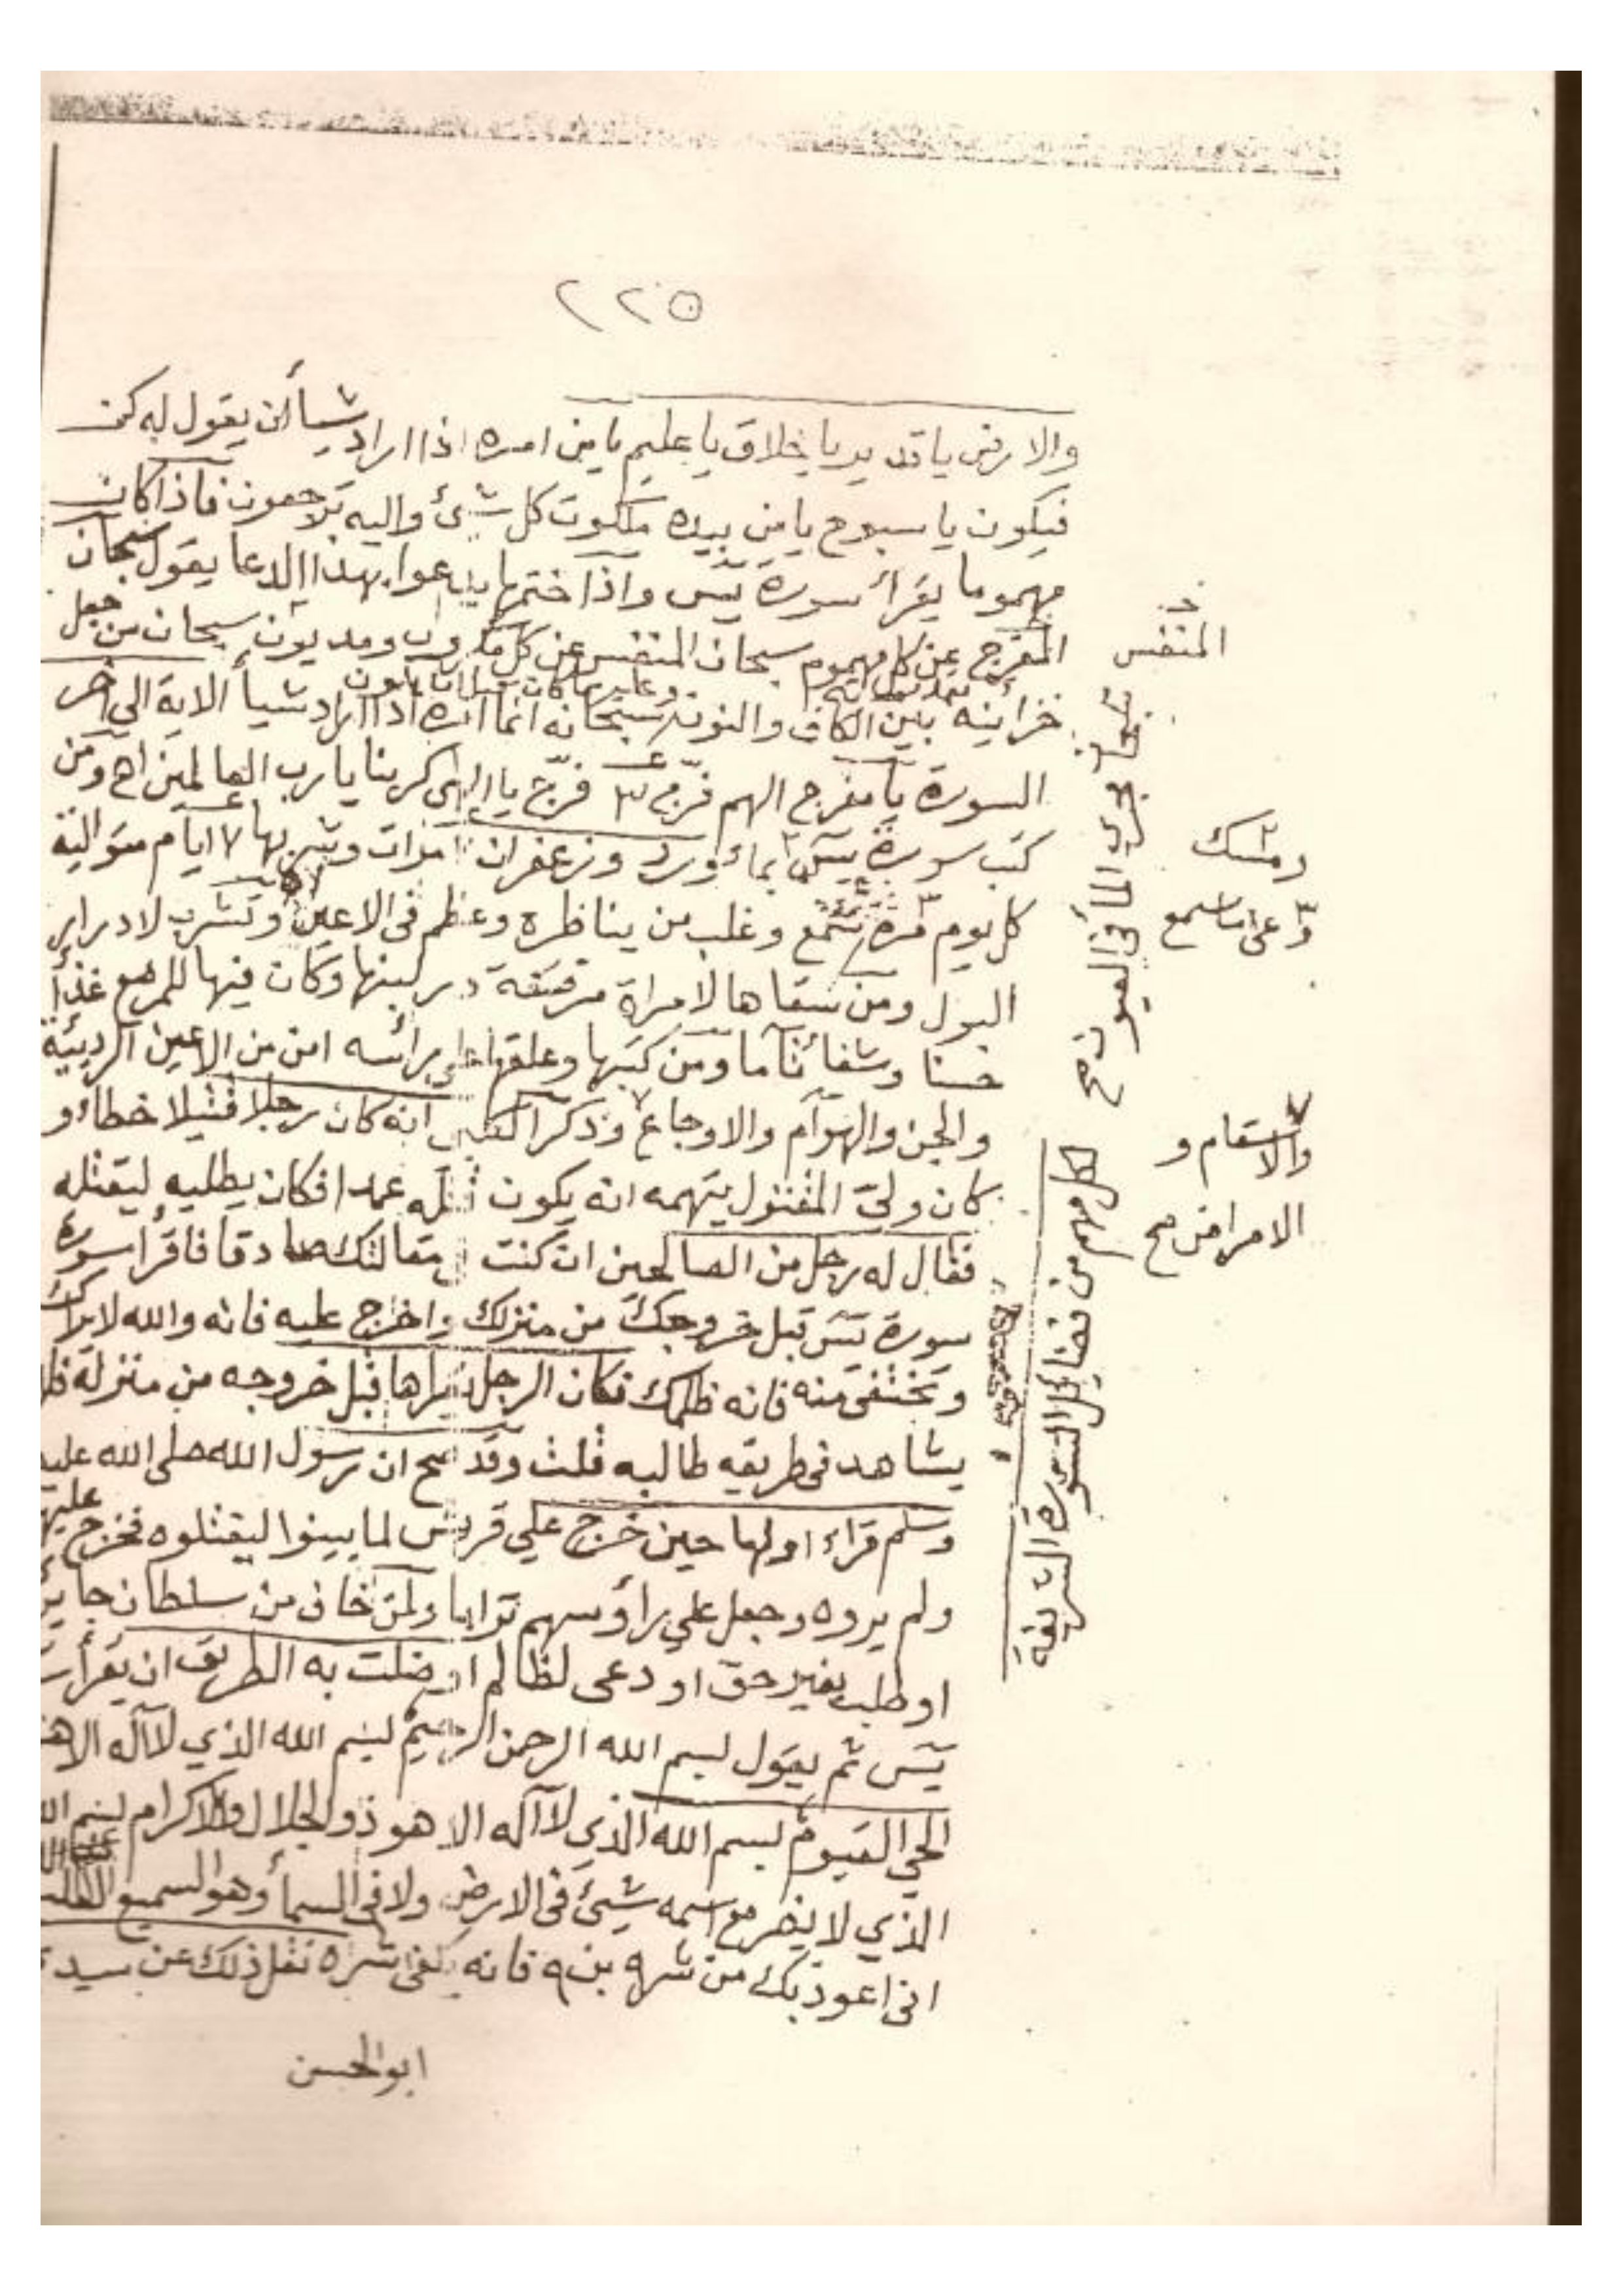 ٢٢٥
والارض يا قدير يا خلاق يا عليم يا من امره اذا اراد شيأ أن يقول له كن
فيكون يا سبوح يا من بيده ملكوت كل شئ واليه ترجعون فاذا كان
مهموما يقرأ سورة يس واذا ختمها يدعوا بهذا الدعا يقول سبحان
المفرج عن كل مهموم سبحان المنفس عن كل مكروب ومديون سبحان من جعل
خزائينه بين الكاف والنون سبحانه انما امره اذا اراد شيأ الاية الى اخر
السورة يا مفرج الهم فرّج ٣ فرّج يا الهى كربنا يا رب العالمين اهـ ومن
كتب سورة يس بماء ورد وزعفران مرات وشربها ٧ ايام متوالية
كل يوم مرة وغلب من يناظره وعظم في الاعين وتشرب لادرار
البول ومن سقاها لامراة مرضعة در لبنها وكان فيها للمرضع غذاً
حسنا وشفائا تاما ومن كتبها وعلقها على رائسه امن من الاعين الرديئة
والجن والهوام والاوجاع وذكر انه كان رجلا قتيلا خطاء و
كان وليّ المقتول يتهمه انه يكون قتله عمدا فكان يطلبه ليقتله
فقال له رجل من الصالحين ان كنت مقالتك صادقا فاقرأ سورة
سورة يس قبل خروجك من منزلك واخرج عليه فانه والله لا يراك
ويختفى منه فانه ظلمك فكان الرجل يراها قبل خروجه من منزله
يشاهد في طريقه طالبه قلت وقد صح ان رسول الله صلى الله عليه
وسلم قراء اولها حين خرج على قريش لما بيتوا ليقتلوه فخرج عليهم
ولم يروه وجعل علي رأوسهم ترابا ولمن خاف من سلطان جاير
او طلب بغير حق او دعى لظالم او ضلت به الطريق ان يقرأ
يس ثم يقول بسم الله الرحمن الرحيم بسم الله الذي لا آله الا هو
الحي القيوم بسم الله الذي لا آله الا هو ذو الجلال والاكرام بسم الله
الذي لا يضر مع اسمه شيئ في الارض ولا في السمأ وهو السميع العليم
انى اعوذ بك من شر فانه يكفى شره نقل ذلك عن سيد
ابو الحسن
المنفس
ومسك
وعى ما سمع
والاسقام و
الامراض صح
لكل مهم من فضايل السورة الشريفة